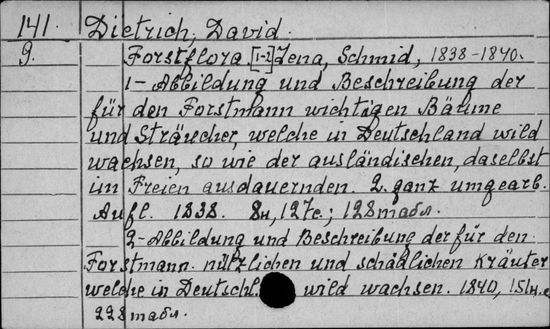 141. Dietrich, David.
9. Forstflora [1-2] Jena, Schmid, 1838-1840.
1- Abbildung und Beschreibung der
für den Forstmann wichtigen Bäume
und Sträucher, welche in Deutschland wild
wachsen, so wie der ausländischen, daselbst
im Freien ausdauernden. 2. ganz umgearb.
Aufl. 1838. 8н, 127с.; 128табл.
2- Abbildung und Beschreibung der für den
Forstmann nützlichen und schädlichen Kräuter
welche in Deutschl. wild wachsen. 1840,
228табл.